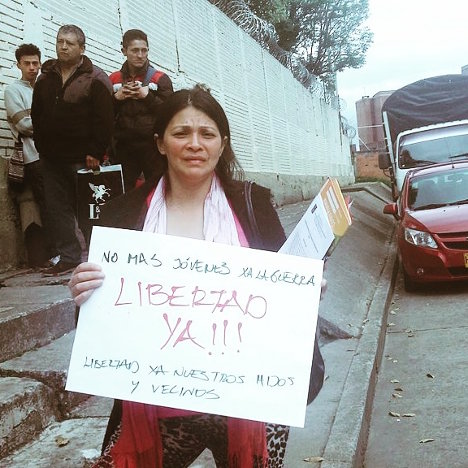 NO MAS JÓVENES XA LA GUERRA
LIBERTAD
YA!!!
LIBERTAD XA NUESTROS HIJOS
Y VECINOS